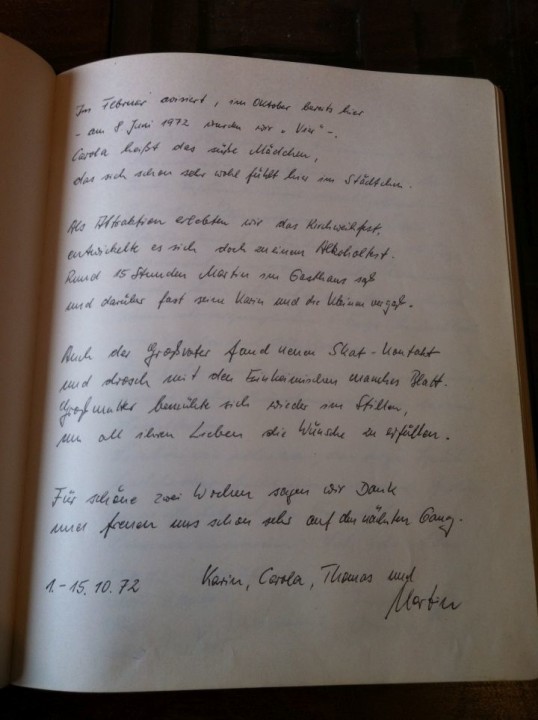 Im Februar avisiert, im Oktober bereits hier
- am 8 Juni 1972 wurden wir „Vier“ -.
Carola heißt das süße Mädchen,
das sich schon sehr wohl fühlt hier im Städtchen.
Als Attraktion erlebten wir das Kirchweihfest,
entwickelte es sich doch zu einem Alkoholtest.
Rund 15 Stunden Martin im Gasthaus saß
und darüber fast seine Karin und die Kleinen vergaß.
Auch der Großvater fand neuen Skat-Kontakt
und drosch mit den Einheimischen manches Blatt.
Großmutter bemühte sich wieder im Stillen,
um all ihren Lieben die Wünsche zu erfüllen.
Für schöne zwei Wochen sagen wir Dank
und freuen uns schon sehr auf den nächsten Gang.
1.-15.10.72 Karin, Carola, Thomas und
Martin